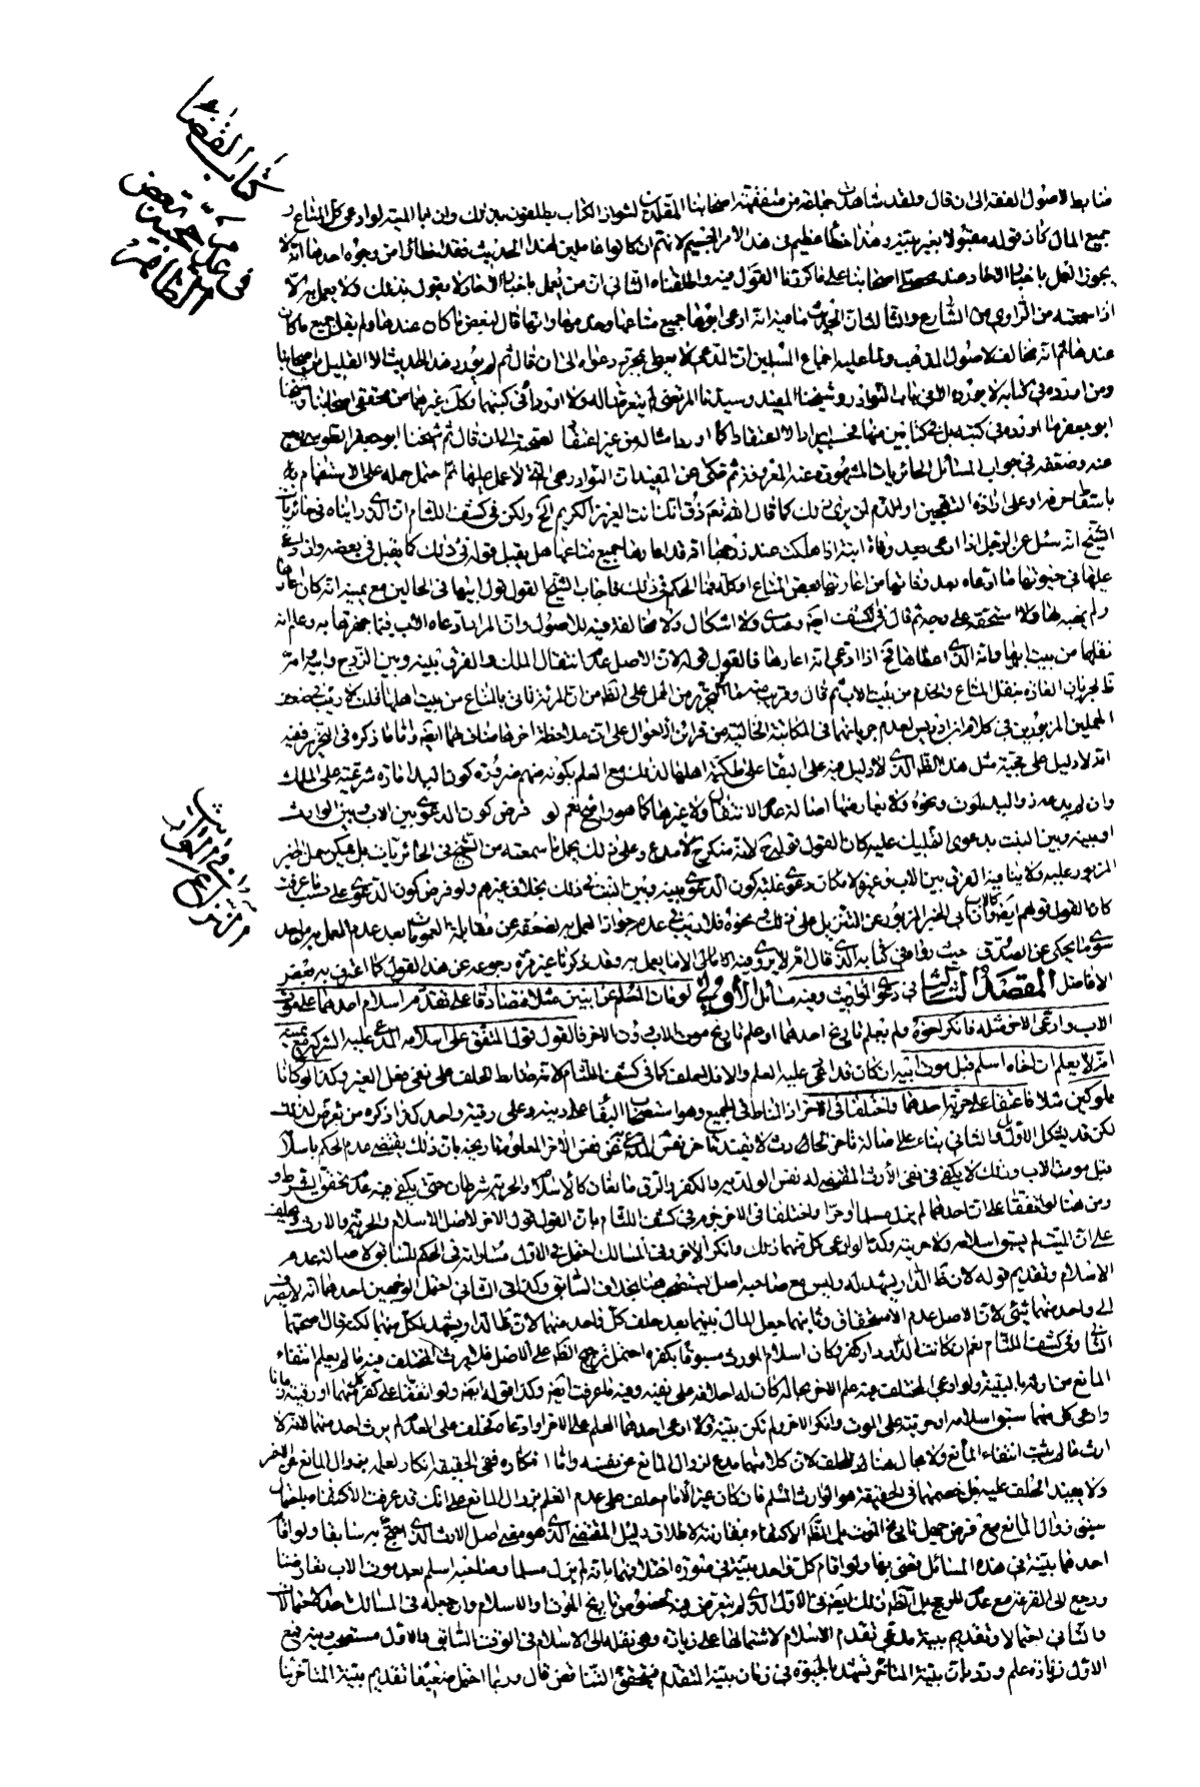 كتاب القضاء
في عدم حجية بعض الظاهر
ضابط لاصول الفقه الى ان قال ولقد شاهدت جماعة من متفقهة اصحابنا المقلدين لسواد الكتاب يطلقون بذلك وان ابا الميتة لو ادعى كل المتاع و
جميع المال كان قوله مقبولا بغير بينة وهذا خطأ عظيم في هذا الامر الجسيم لانهم ان كانوا عاملين بهذا الحديث فقد اخطأوا من وجوه احدها انه لا
يجوز العمل باخبار الاحاد عند اصحابنا على ما كررنا القول فيه واطلقناه الثاني ان من يعمل باخبار الاحاد لا يقول بذلك ولا يعمل به الا
اذا سمعه من الراوي من الشارع والثالث ان الحديث ما فيه انه ادعى ابوها جميع متاعها وخدمها وانما قال لبعض ما كان عندها ولم يقل جميع ما كان
عندها ثم انه مخالف لاصول المذهب ولما عليه اجماع المسلمين ان المدعي لا يعطى بمجرد دعواه الى ان قال ثم لم يورد هذا الحديث الا القليل من اصحابنا
ومن اورده في كتابه لا يورده الا في باب النوادر وشيخنا المفيد وسيدنا المرتضى لم يتعرضا له ولا اورداه في كتبهما وكذلك غيرهما من محققي اصحابنا وشيخنا
ابو جعفر ما اورده في كتبه بل في كتابين منها فحسب ايرادا لا اعتقادا كما اورد امثاله من غير اعتقاد لصحته الى ان قال ثم شيخنا ابو جعفر الطوسي رجع
عنه وضعفه في جواب المسائل الحائريات المشهورة عنه المعروفة ثم حكى عن المفيد ان النوادر هي التي لا عمل عليها ثم احتمل حمله على الاستفهام
باسقاط حرفه او على ارادة التهجين او الذم لمن يرى ذلك كما قال الله تعالى ذق انك انت العزيز الكريم الخ ولكن في كشف اللثام ان الذي رايناه في حائريات
الشيخ انه سئل عن الرجل اذا ادعى بعد وفاة ابنته اذا هلكت عند زوجها انه قد اعارها جميع متاعها هل يقبل قوله في ذلك كما يقبل في بعضه وان ادعى
عليها في حيوتها ما ادعاه بعد وفاتها من اعارتها بعض المتاع او كله فما الحكم في ذلك فاجاب الشيخ القول قول ابيها في الحالين مع يمينه انه كان اعارها
ولم يهبه لها ولا استحقته على وجه ثم قال في الكشف
نقلها من بيت ابيها وانه الذي اعطاها فح اذا ادعى انه اعارها فالقول قوله لان الاصل عدم انتقال الملك والفرق بينه وبين الزوج وابيه وامه
ظ لجريان العادة بنقل المتاع والخدم من بيت الاب ثم قال وقريب منه
المحملين المزبورين في كلام ابن ادريس لعدم جريانهما في المكاتبة الخالية من قرائن الاحوال على ان ملاحظة اخرها مناف لهما ايضا واما ما ذكره في التحرير ففيه
انه لا دليل على حجية مثل هذا الظاهر الذي لا دليل فيه على البقاء على ملكية اهلها لذلك مع العلم بكونه منهم ضرورة كون اليد امارة شرعية على الملك
النزاع في المواريث
او بينه وبين البنت بدعوى التمليك عليه كان القول قوله ح لانه منكر ح لا مدع وعلى ذلك يحمل ما سمعته من الشيخ في الحائريات بل يمكن حمل الخبر
المزبور عليه ولا ينافيه الفرق بين الاب وغيره لامكان دعوى غلبة كون الدعوى بينه وبين البنت في ذلك بخلاف غيره ولو فرض كون الدعوى على حسب ما عرفت
كان القول قولهم ايضا فان ابى الخبر المزبور عن التنزيل على ذلك ونحوه فلا ريب في عدم جواز العمل به لضعفه عن مقابلة العمومات بعد عدم العمل به من احد
سوى ما يحكى عن الصدوق حيث رواه في كتابه الذي قال انه لا يروي فيه الا ما يعمل به وقد ذكرنا غير مرة رجوعه عن هذا القول كما اعترف به بعض
الافاضل المقصد الثالث في دعوى المواريث وفيه مسائل الأولى لو مات المسلم عن ابنين مثلا فتصادقا على تقدم اسلام احدهما على موت
الاب وادعى الاخر مثله فانكر اخوه ولم يعلم تاريخ احدهما او علم تاريخ موت الاب دون الاخر فالقول قول المتفق على اسلامه المدعى عليه الشركة مع يمينه
انه لا يعلم ان اخاه اسلم قبل موت ابيه ان كان قد ادعى عليه العلم والا فلا حلف كما في كشف اللثام لانه ضابط الحلف على نفي فعل الغير وكذا لو كانا
مملوكين مثلا فاعتقا على حرية احدهما واختلفا في الاخر
لكن قد يشكل الاول والثاني بناء على اصالة تاخر الحادث لا يفيد تاخر نفس المدعى عن نفس الاخر المعلوم تاريخه بان ذلك يقتضي عدم الحكم باسلام
قبل موت الاب وذلك لا يكفي في نفي الارث المقتضي له نفس الولدية والكفر والرق مانعان لا الاسلام والحرية شرطان حتى يكفي فيه عدم تحقق الشرط و
ومن هنا لو اتفقا على ان احدهما لم يزل مسلما او حرا واختلفا في الاخر جزم في كشف اللثام بان القول قول الاخر لاصل الاسلام والحرية والارث ويحلف
على ان الميت لم يسبق اسلامه ولا حريته وكذا لو ادعى كل منهما ذلك وانكر الاخر وفي المسالك احتمل في الاول مساواته في الحكم للسابق لاصالة عدم
الاسلام وتقديم قوله لان ظاهر الدار يشهد له وليس مع صاحبه اصل يستصحب هنا بخلاف السابق وكذا في الثاني احتمل الوجهين احدهما انه لا يصرف
الى واحد منهما شيئ لان الاصل عدم الاستحقاق وثانيهما جعل المال بينهما بعد حلف كل واحد منهما لان ظاهر الدار يشهد لكل منهما لكنه قال اصحهما
الثاني وفي كشف اللثام نعم ان كانت الدار دار كفر وكان اسلام المورث مسبوقا بكفره احتمل ترجيح الظاهر على الاصل فلا يرث المختلف فيه ما لم يعلم انتفاء
المانع من ارثه بالبينة ولو ادعى المختلف فيه علم الاخر بحاله كان له احلافه على نفيه وفيه ما عرفت ايضا وكذا قوله ايضا ولو اتفقا على كفر كل منهما او رقيته زمانا
وادعى كل منهما سبق اسلامه او حريته على الموت وانكر الاخر ولم تكن بينة ولا ادعى احدهما العلم على الاخر او ادعاه فحلف على العدم لم يرث احد منهما
ارث ما لم يثبت انتفاء المانع ولا مجال هنا للحلف لان كلا منهما مدع لزوال المانع عن نفسه واما انكاره ففي الحقيقة انكار لعلمه بزوال المانع عن الاخر
ولا يفيد الحلف عليه بل خصمهما في الحقيقة هو الوارث المسلم فان كان غير الامام حلف على عدم العلم بزوال المانع على انك قد عرفت الاكتفاء
سبق زوال المانع مع فرض جهل تاريخ الموت بل الظاهر الاكتفاء بمقارنته لاطلاق دليل المقتضي الذي هو مقتضى اصل الارث الذي احتج به سابقا ولو اقام
احدهما بينة في هذه المسائل قضي بها ولو اقام كل واحد بينة في صورة اختلافهما بانه لم يزل مسلما وصاحبه اسلم بعد موت الاب تعارضتا
ورجع الى القرعة مع عدم المرجح بل الظاهر ذلك ايضا في الاول الذي لم يتعرض فيه لخصوص تاريخ الموت والاسلام وان جعله في المسالك احد
والثاني احتمالا وتقديم بينة مدعي تقدم الاسلام لاشتمالها على زيادة وهي نقله الى الاسلام في الوقت السابق والاول مستصحب ومنه
الاول زيادة علم ورد بان بينة المتاخر تشهد بالحيوة في زمان بينة المتقدم فيتحقق التناقض قال وربما احتمل ضعيفا تقديم بينة المتاخر بناء